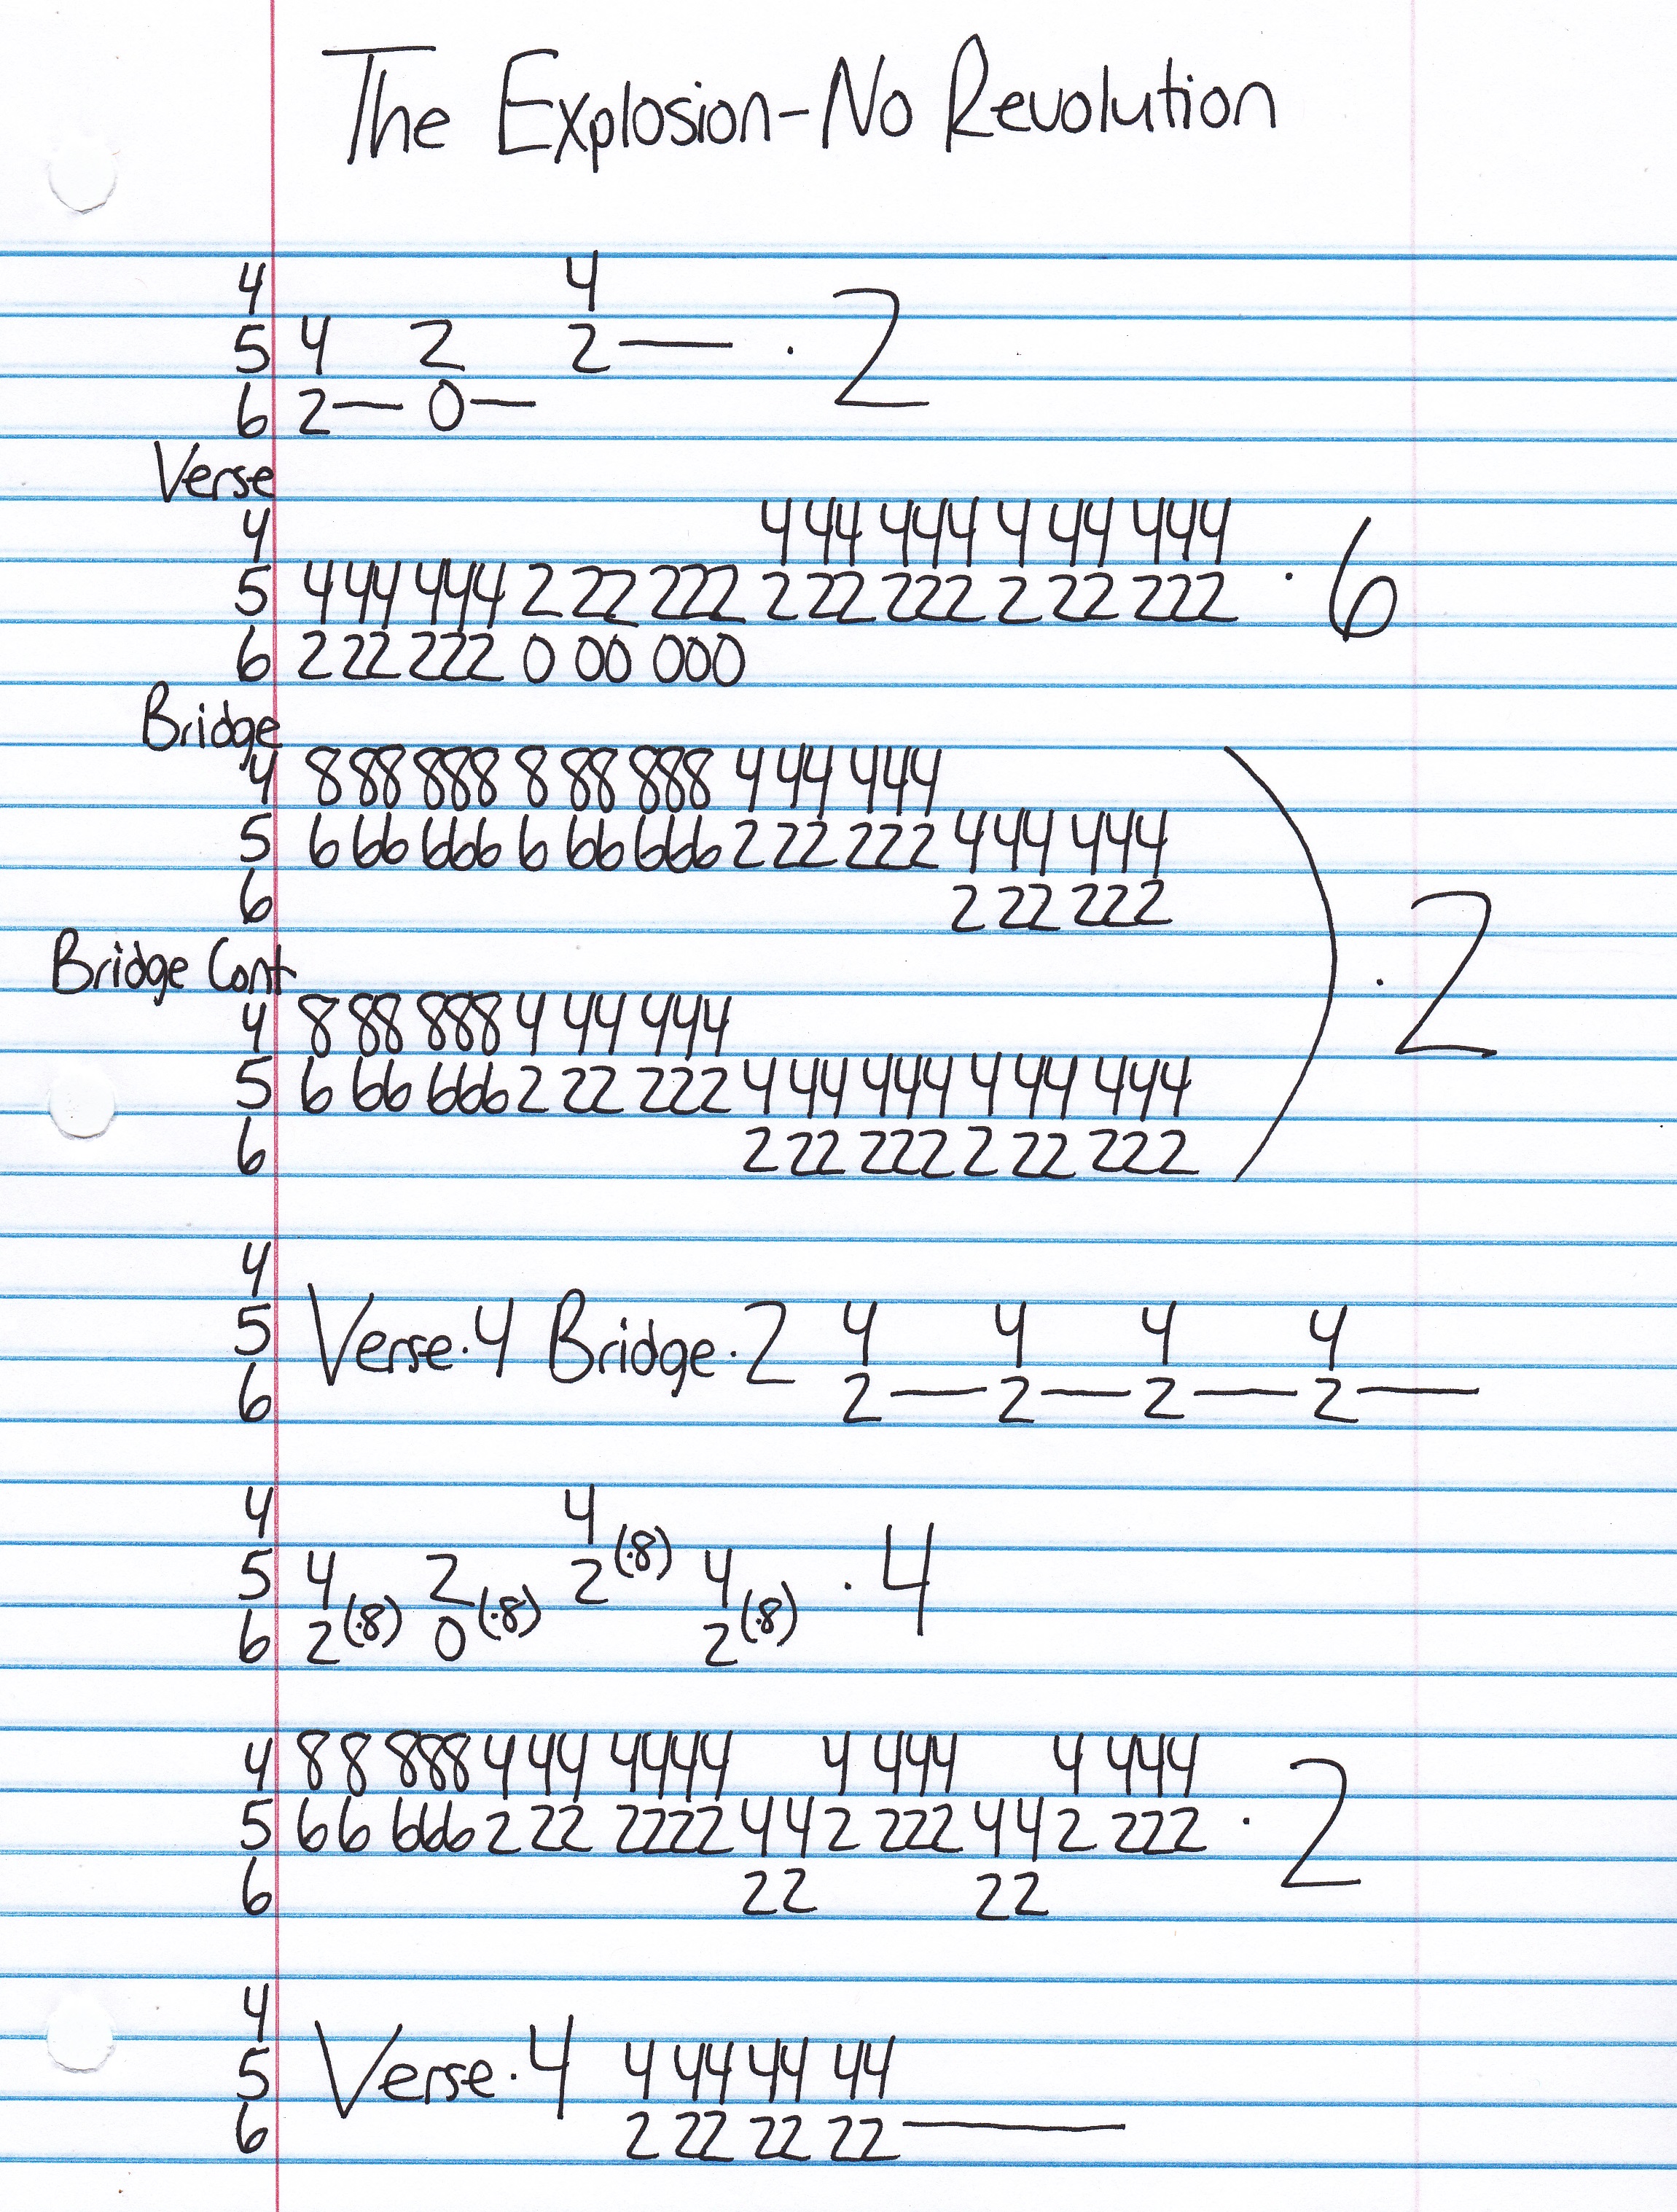 The Explosion-No Revolution
4 4
5 4 2 2— · 2
6 2— 0—
Verse
4 4 44 444 4 44 444
5 4 44 444 2 22 222 2 22 222 2 22 222 · 6
6 2 22 222 0 00 000
Bridge
4 8 88 888 8 88 888 4 44 444
5 6 66 666 6 66 666 2 22 222 4 44 444
6 2 22 222
Bridge Cont
4 8 88 888 4 44 444
5 6 66 666 2 22 222 4 44 444 4 44 444 · 2
6 2 22 222 2 22 222
4
5 Verse·4 Bridge·2 4 4 4 4
6 2— 2— 2— 2—
4 4
5 4 2 2(·8) 4 · 4
6 2(·8) 0(·8) 2(·8)
4 8 8 888 4 44 4444 4 444 4 444
5 6 6 666 2 22 2222 4 4 2 222 4 4 2 222 · 2
6 22 22
4
5 Verse·4 4 44 44 44
6 2 22 22 22—